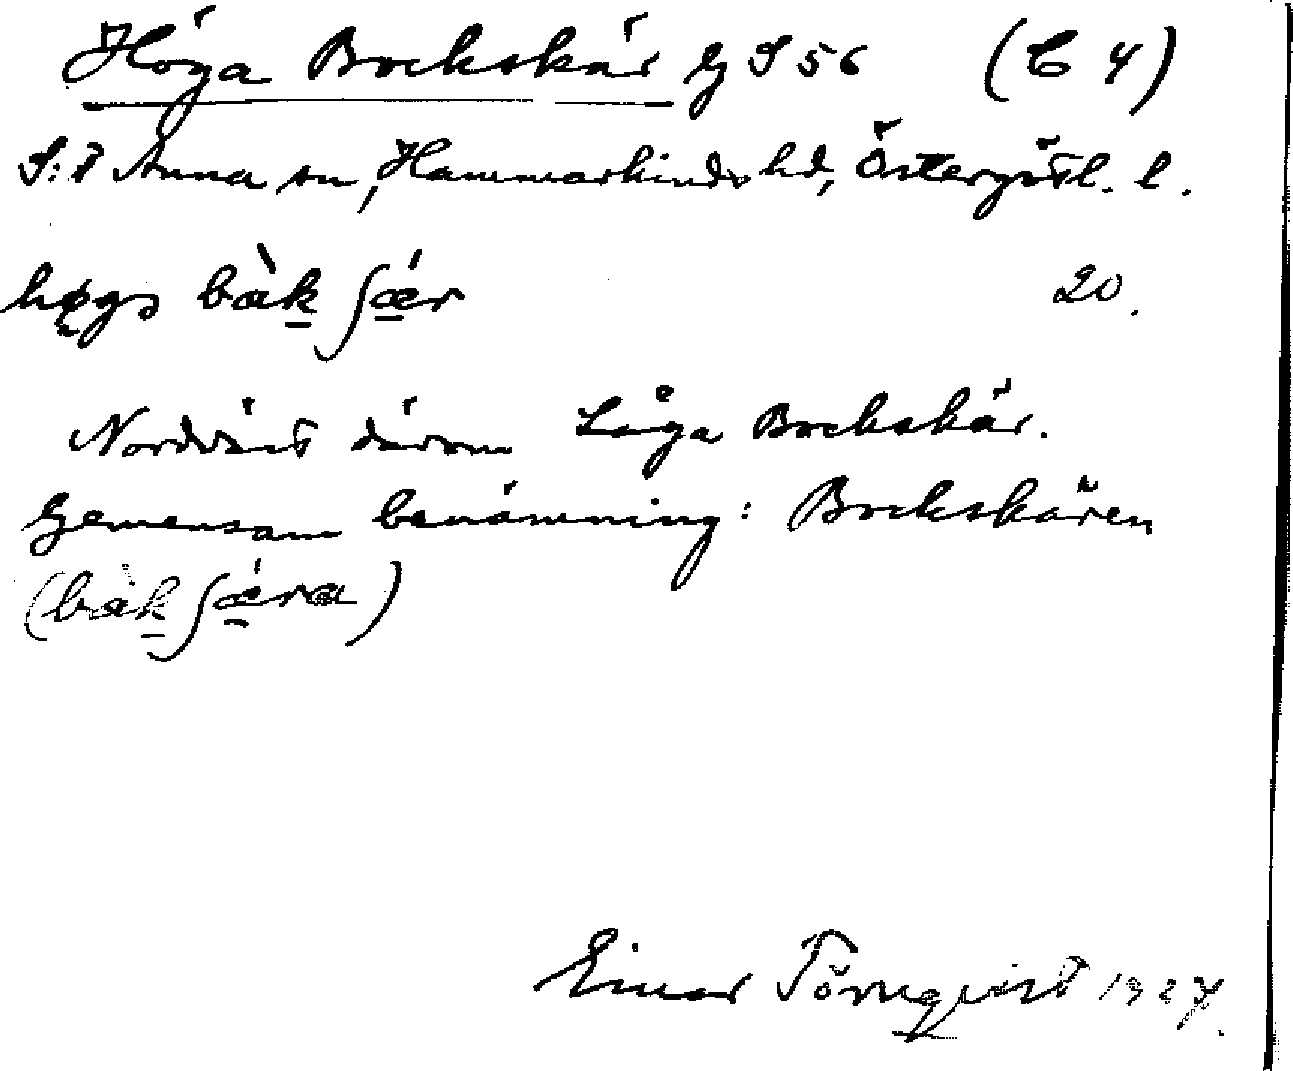 Höga Bockskär G S 56 (C 4)
S:t Anna sn, Hammarkinds hd, Östergötl. l.
högs bàk ʃǽr 20.
Nordväst därom Låga Bockskär.
Gemensam benämning: Bockskären
(bàk ʃǽra)
Einar Törnqvist 1927.